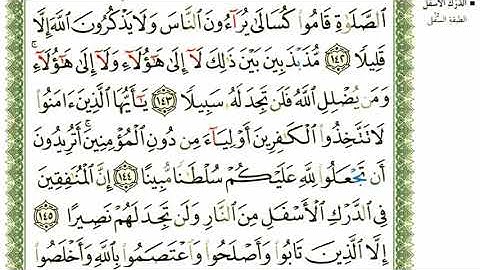 الدَّرْكِ الْأَسْفَلِ
الطبقة السُّفلى
الصَّلَوٰةِ قَامُوا۟ كُسَالَىٰ يُرَآءُونَ النَّاسَ وَلَا يَذْكُرُونَ اللَّهَ إِلَّا
قَلِيلًا ١٤٢ مُّذَبْذَبِينَ بَيْنَ ذَٰلِكَ لَآ إِلَىٰ هَٰٓؤُلَآءِ وَلَآ إِلَىٰ هَٰٓؤُلَآءِ ۚ
وَمَن يُضْلِلِ اللَّهُ فَلَن تَجِدَ لَهُۥ سَبِيلًا ١٤٣ يَٰٓأَيُّهَا الَّذِينَ ءَامَنُوا۟
لَا تَتَّخِذُوا۟ الْكَٰفِرِينَ أَوْلِيَآءَ مِن دُونِ الْمُؤْمِنِينَ ۚ أَتُرِيدُونَ
أَن تَجْعَلُوا۟ لِلَّهِ عَلَيْكُمْ سُلْطَٰنًا مُّبِينًا ١٤٤ إِنَّ الْمُنَٰفِقِينَ
فِى الدَّرْكِ الْأَسْفَلِ مِنَ النَّارِ وَلَن تَجِدَ لَهُمْ نَصِيرًا ١٤٥
إِلَّا الَّذِينَ تَابُوا۟ وَأَصْلَحُوا۟ وَاعْتَصَمُوا۟ بِاللَّهِ وَأَخْلَصُوا۟